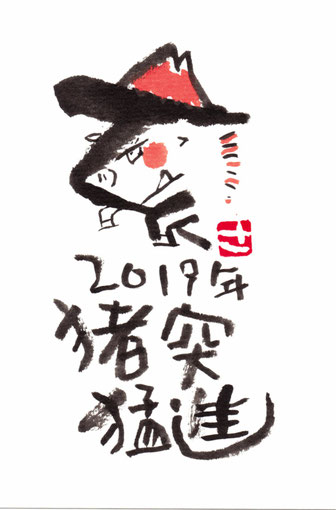 2019年
猪突
猛進